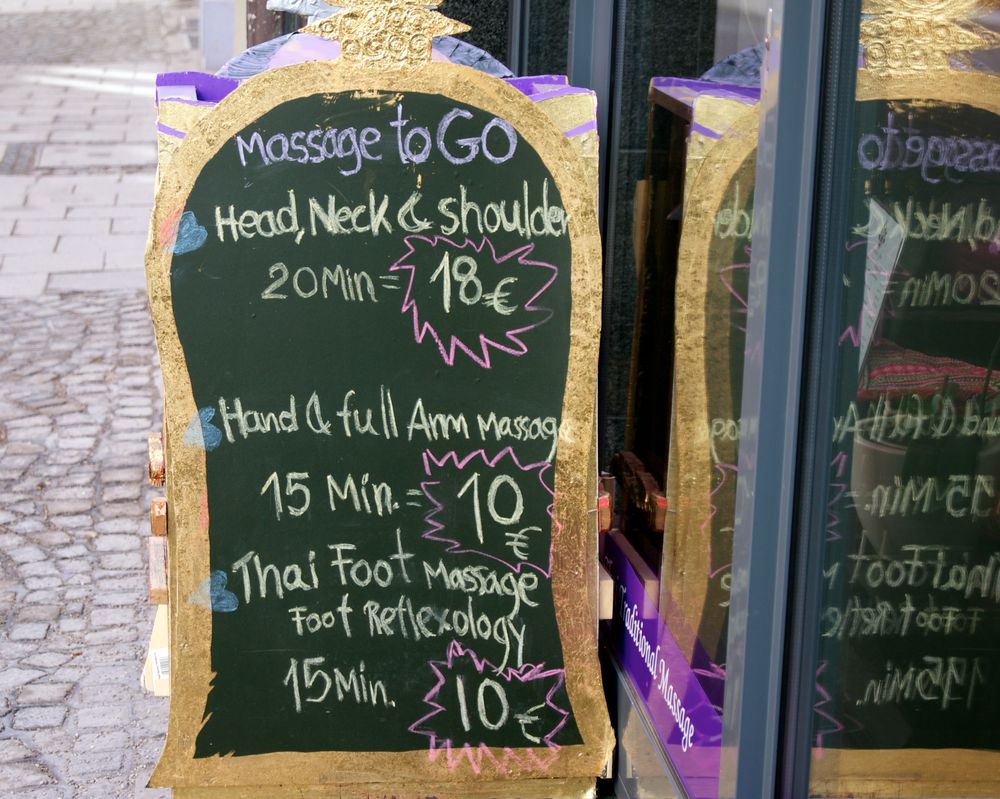 Massage to GO
Head, Neck & shoulder
20 Min = 18 €
Hand & full Arm Massage
15 Min. = 10 €
Thai Foot Massage
Foot Reflexology
15 Min. 10 €
Traditional Massage